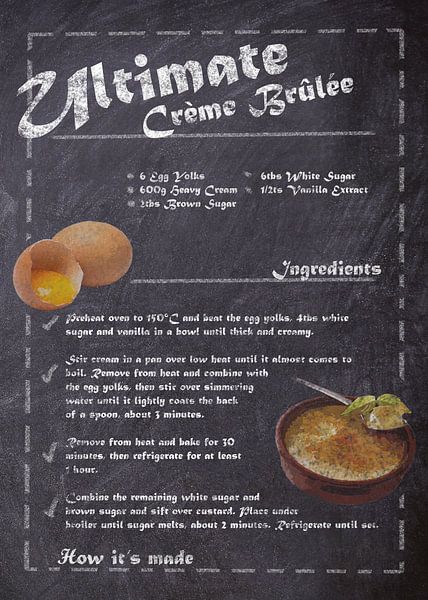 Ultimate
Crème Brûlée
6 Egg Yolks
600g Heavy Cream
2tbs Brown Sugar
6tbs White Sugar
1/2ts Vanilla Extract
Ingredients
Preheat oven to 150°C and beat the egg yolks, 4tbs white
sugar and vanilla in a bowl until thick and creamy.
Stir cream in a pan over low heat until it almost comes to
boil. Remove from heat and combine with
the egg yolks, then stir over simmering
water until it lightly coats the back
of a spoon, about 3 minutes.
Remove from heat and bake for 30
minutes, then refrigerate for at least
1 hour.
Combine the remaining white sugar and
brown sugar and sift over custard. Place under
broiler until sugar melts, about 2 minutes. Refrigerate until set.
How it's made